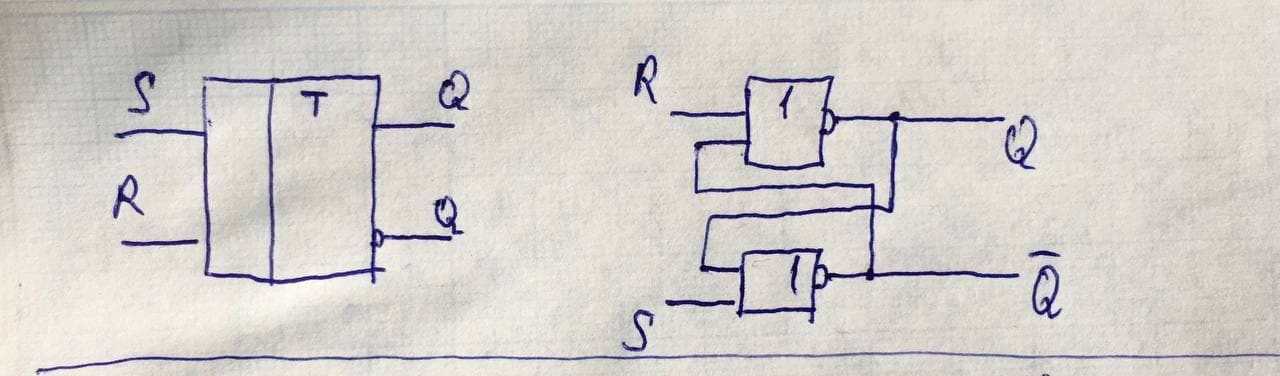 S T Q
R Q
R 1 Q
1 Q̅
S